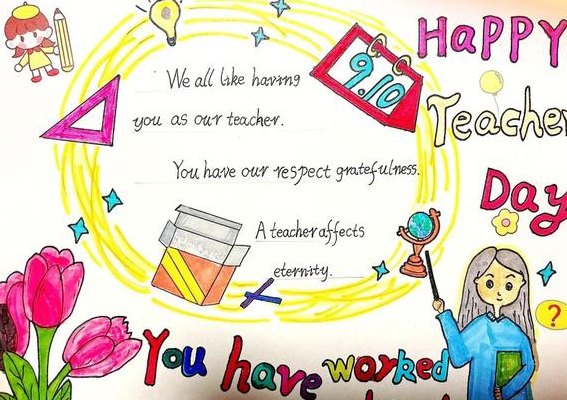 HAPPY
Teacher
Day
9.10
We all like having
you as our teacher.
You have our respect gratefulness.
A teacher affects
eternity.
?
You have worked